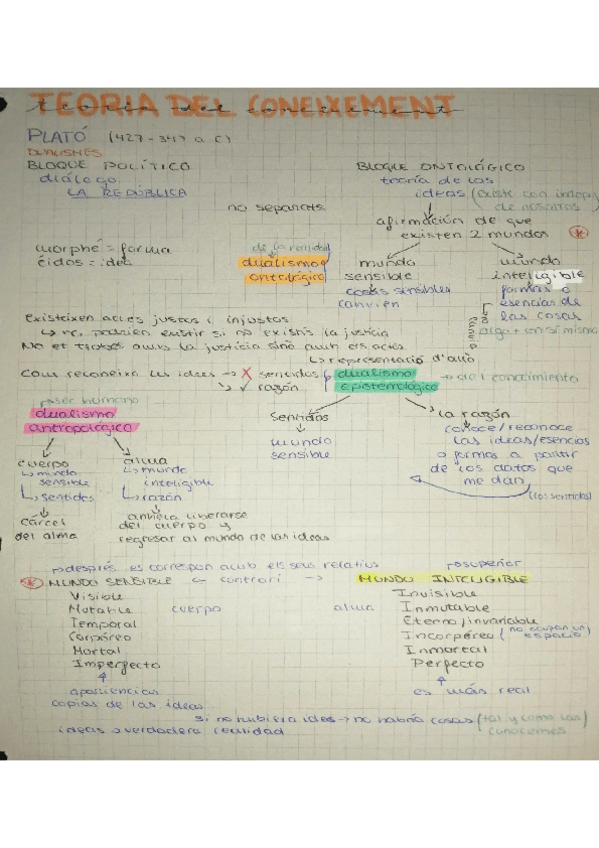 TEORIA DEL CONEIXEMENT
PLATÓ (427-347 a.C)
DUALISMES
BLOQUE POLÍTICO
diálogo
LA REPÚBLICA
BLOQUE ONTOLÓGICO
teoría de las
ideas (existe con indep.
de nosotros)
no separats
afirmación de que
existen 2 mundos
morphé = forma
éidos = idea
de la realidad
dualismo
ontológico
mundo
sensible
cosas sensibles
canvien
mundo
inteligible
formas o
esencias de
las cosas
algo + en sí misma
Existeixen actes justos i injustos
no podrien existir si no existís la justícia
No et trobes amb la justícia sinó amb els actes
representació d'allò
Com reconeixem les idees → X sentidos
✓ razón
dualismo
epistemológico
del conocimiento
sentidos
mundo
sensible
la razón
conoce/reconoce
las ideas/esencias
o formas a partir
de los datos que
me dan
(los sentidos)
ser humano
dualismo
antropológico
cuerpo
mundo
sensible
sentidos
cárcel
del alma
alma
mundo
inteligible
razón
anhela liberarse
del cuerpo y
regresar al mundo de las ideas
després es correspon amb els seus relatius
superior
MUNDO SENSIBLE ← contrari → MUNDO INTELIGIBLE
Visible
Mutable
Temporal
Corpóreo
Mortal
Imperfecto
cuerpo
alma
Invisible
Inmutable
Eterno/invariable
Incorpóreo (no ocupan un
espacio)
Inmortal
Perfecto
apariencias
copias de las ideas
es más real
si no hubiera ideas → no habría cosas (tal y como las
conocemos
ideas → verdadera realidad